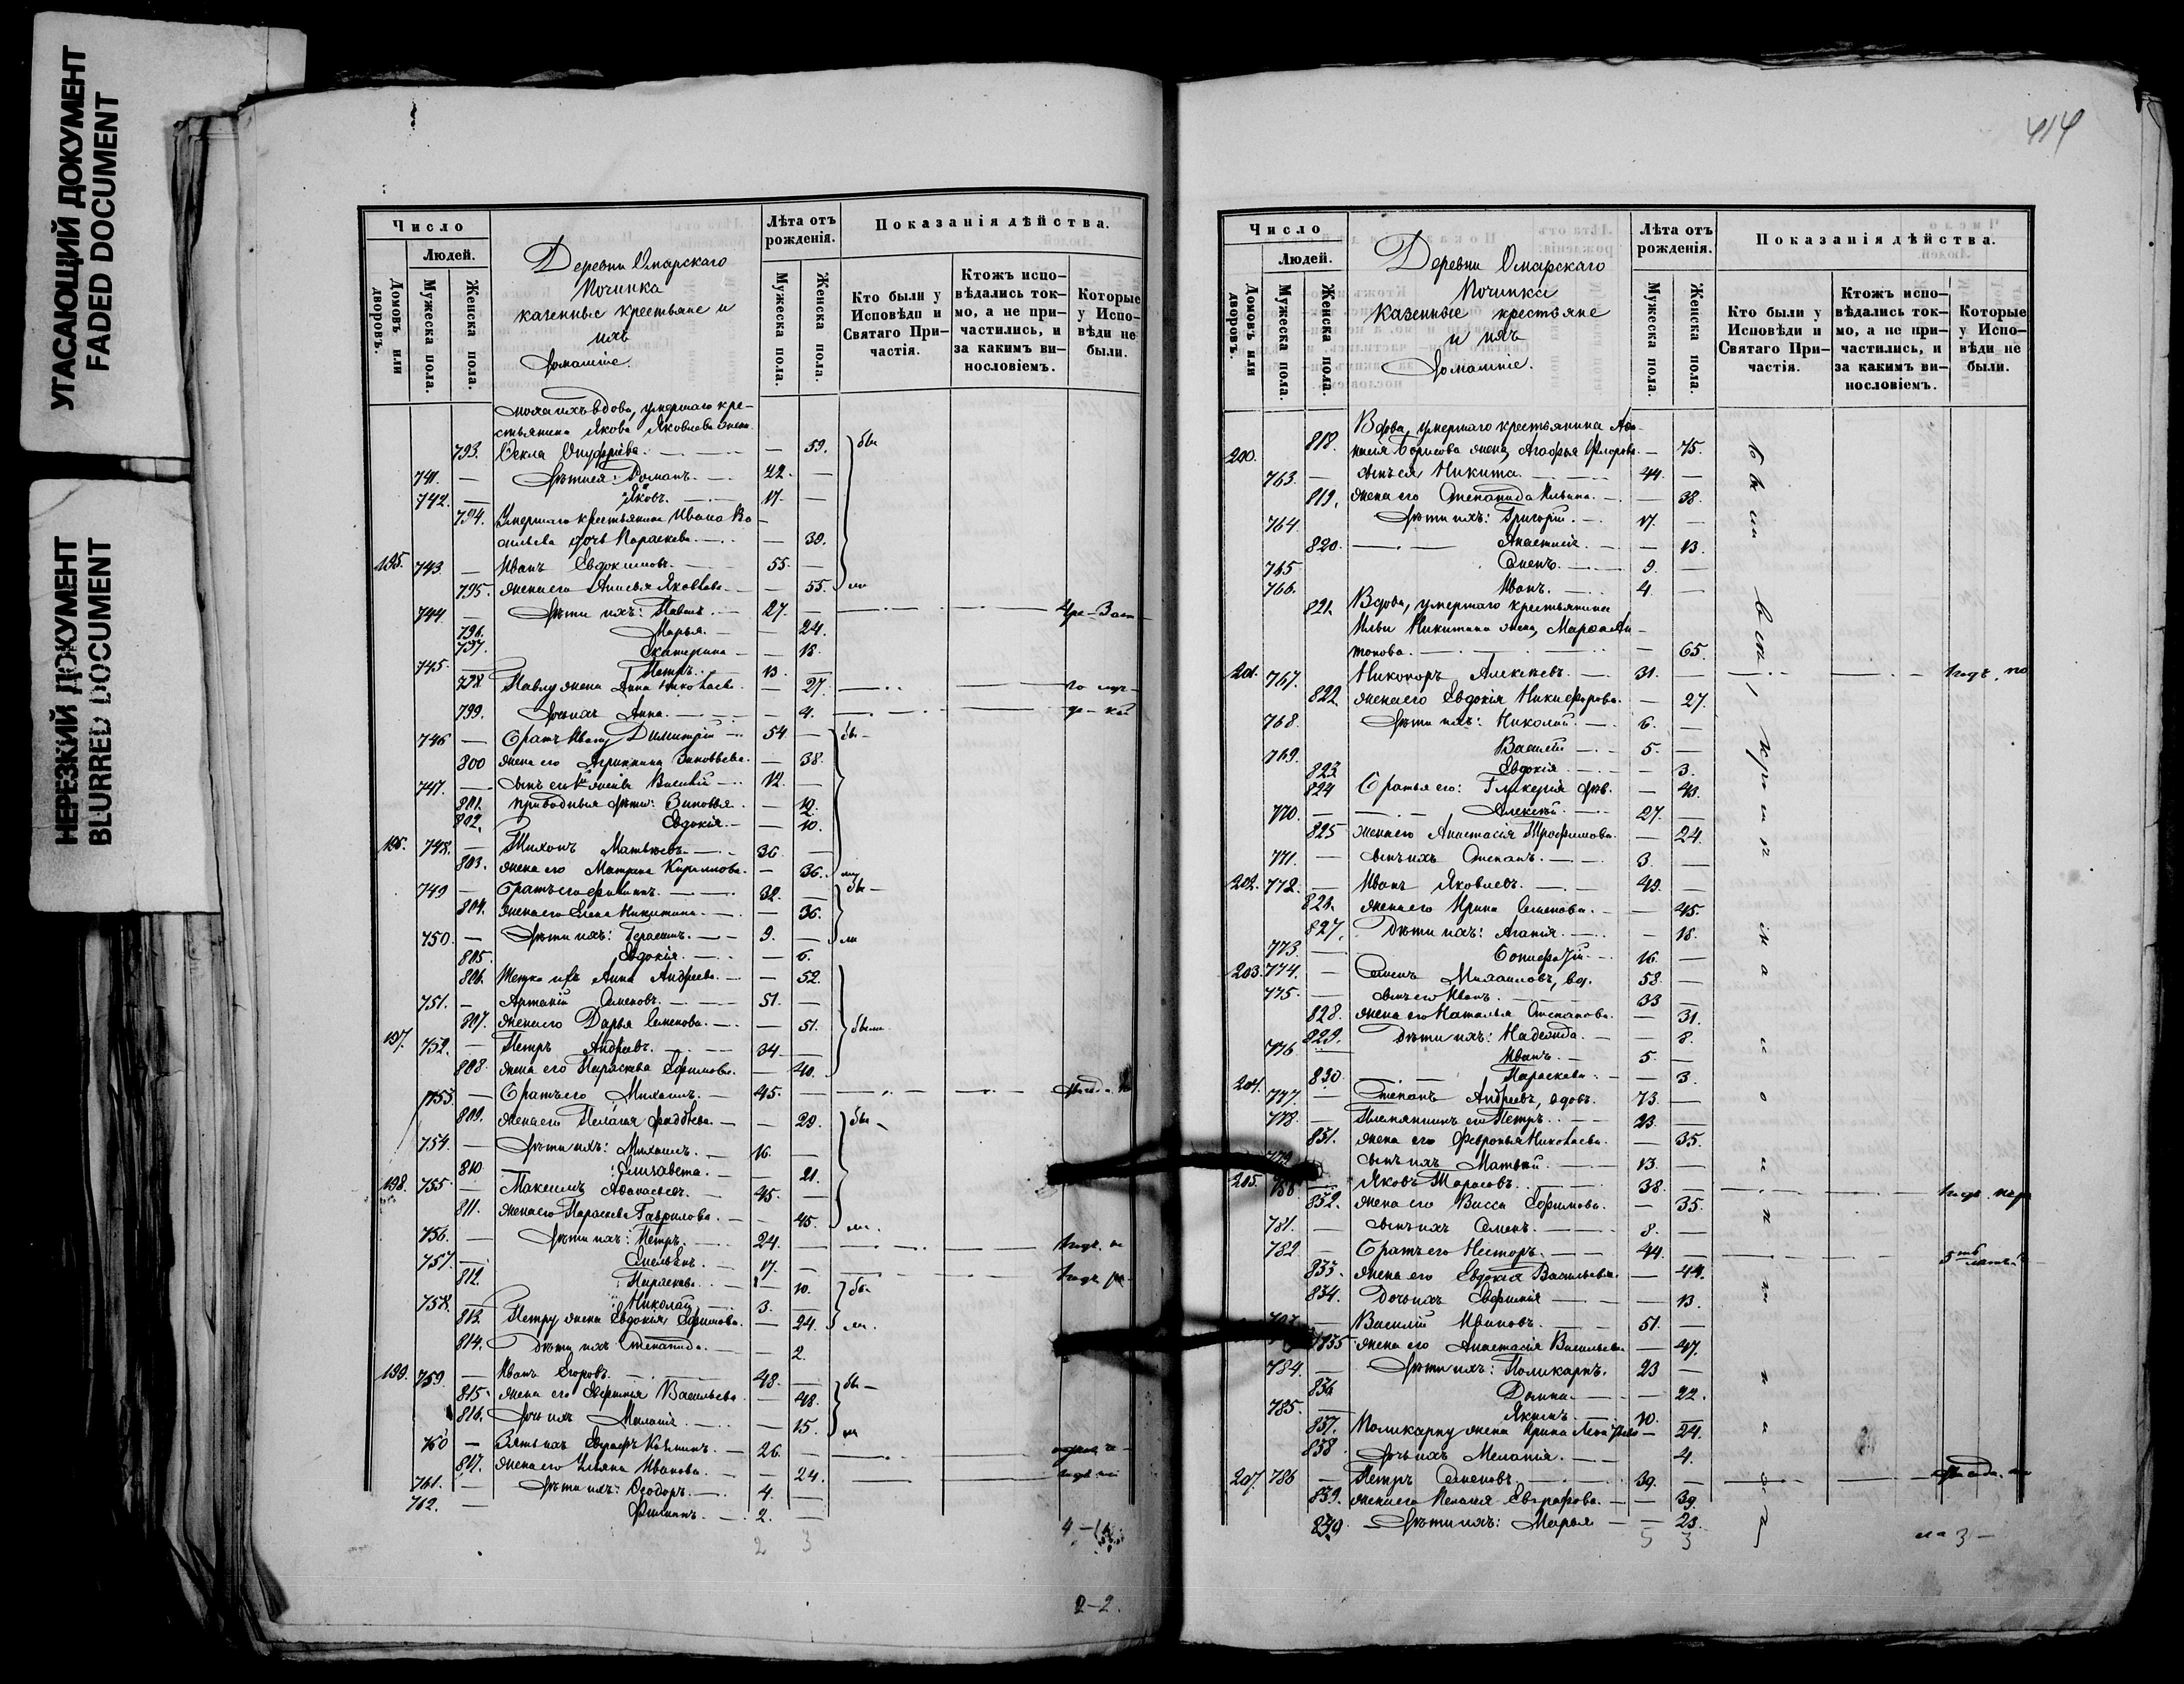 УГАСАЮЩИЙ ДОКУМЕНТ
FADED DOCUMENT
НЕРЕЗКИЙ ДОКУМЕНТ
BLURRED DOCUMENT
Число
Людей.
Домовъ или дворовъ.
Мужеска пола.
Женска пола.
Деревни Омарскаго
Починка
казенные крестьяне и
ихъ
домашніе.
Лѣта отъ рожденія.
Мужеска пола.
Женска пола.
Показанія дѣйства.
Кто были у Исповѣди и Святаго Причастія.
Ктожъ исповѣдались токмо, а не причастились, и за какимъ винословіемъ.
Которые у Исповѣди не были.
вдова, умершаго кре-
стьянина Якова Яковлева жена
793. Ѳекла Онуфріева. — 59.
741. — Дѣти ея: Романъ. 22. —
742. — Яковъ. 17. —
794. Умершаго крестьянина Ивана Ва-
сильева дочь Параскева. — 39.
195. 743. — Иванъ Евдокимовъ. 55. —
795. жена его Анисья Яковлева. — 55.
744. — Дѣти ихъ: Павелъ. 27. —
796. Марья. — 24.
797. Екатерина — 18.
745. — Петръ. 13. —
798. Павлу жена Анна Николаева — 27.
799. Дочь ихъ Анна. — 4.
746 — Братъ Ивану Димитрій 54. —
800 жена его Агриппина Зиновьева. — 38.
747. — сынъ его Василій 12. —
801. приводныя дѣти: Зиновья. — 12.
802. Евдокія. — 10.
196. 748. — Тихонъ Матвѣевъ. 36. —
803. жена его Матрена Кириллова. — 36.
749 — Братъ его Филиппъ. 32. —
804. жена его Елена Никитина. — 36.
750. — Дѣти ихъ: Герасимъ. 9. —
805. Евдокія. — 6.
806. Тетка ихъ Анна Андреева. — 52.
751. — Артамій Семеновъ. 51. —
807. жена его Дарья Семенова. — 51. были
197. 752. — Петръ Андреевъ. 34. —
808. жена его Параскева Ефимова. — 40.
753. — Братъ его Михаилъ. 45. —
809. жена его Пелагія Фаддѣева. — 29.
754. — Дѣти ихъ: Михаилъ. 16. —
810 Елизавета. — 21.
198. 755. — Максимъ Аѳанасьевъ. 45. —
811. жена его Параскева Гаврилова. — 45.
756. — Дѣти ихъ: Петръ. 24. —
757. — Емельянъ. 17. —
812. Параскева. — 10.
758. — Николай 3. —
813. Петру жена Евдокія Ефимова. — 24.
814. Дѣти ихъ Степанида. — 2.
199. 759. — Иванъ Егоровъ. 48. —
815. жена его Ефимья Васильева — 48.
816. Дочь ихъ Маланія. — 15.
760 — Зять ихъ 26. —
817. жена его Ульяна Иванова. — 24.
761. — Дѣти ихъ: Ѳеодоръ. 4. —
762. — Филиппъ. 2. —
2 3
2-2.
414
Число
Людей.
Домовъ или дворовъ.
Мужеска пола.
Женска пола.
Деревни Омарскаго
Починка
Казенные крестьяне
и ихъ
домашніе.
Лѣта отъ рожденія.
Мужеска пола.
Женска пола
Показанія дѣйства.
Кто были у Исповѣди и Святаго Причастія.
Ктожъ исповѣдались токмо, а не причастились, и за какимъ винословіемъ.
Которые у Исповѣди не были.
Вдова, умершаго крестьянина
200. 818. Борисова жена Агафья Флорова. — 75.
763. — сынъ ея Никита 44. —
819. жена его Степанида Ильина. — 38.
764. Дѣти ихъ: Григорій. 17. —
820. Анастасія. — 13.
765 Семенъ. 9. —
766. Иванъ. 4. —
821. Вдова, умершаго крестьянина
Ильи Никитина жена, Марѳа Ан-
тонова. — 65.
201. 767. Никоноръ Алексѣевъ. 31. —
822. жена его Евдокія Никифорова. — 27.
768. Дѣти ихъ: Николай. 6. —
769. Василій 5. —
823. Евдокія. — 3.
824 Братья его: Гликерія дѣв. — 43.
770. Алексѣй. 27. —
825 жена его Анастасія Трофимова. — 24.
771. — сынъ ихъ Степанъ. 3. —
202. 772. — Иванъ Яковлевъ. 49. —
826. жена его Ирина Семенова. — 45.
827. Дѣти ихъ: Агапія. — 18.
773. — Бонифатій. 16. —
203. 774. — Семенъ Михаиловъ, вд. 58. —
775. — сынъ его Иванъ. 33 —
828. жена его Наталья Степанова. — 31.
829. Дѣти ихъ: Надежда. — 8.
776 — Иванъ. 5. —
830 Параскева. — 3.
204. 777 — Степанъ Андреевъ, вдовъ. 73. —
778. — Племянникъ его Петръ. 23. —
831. жена его Февронья Николаева. — 35.
779 сынъ ихъ Матвѣй. 13. —
205. 780 — Яковъ Тарасовъ. 38. —
832. жена его Васса Ефимова. — 35.
781. — сынъ ихъ Семенъ. 8. —
782. — Братъ его Несторъ. 44. —
833. жена его Евдокія Васильева. — 44.
834. Дочь ихъ Евфимія — 13.
Василій Ивановъ. 51. —
835 жена его Анастасія Васильева — 47.
784. — Дѣти ихъ: Поликарпъ. 23 —
836 Домна. — 22.
785. — Якимъ. 10. —
837. Поликарпу жена Ирина — 24.
838. дочь ихъ Меланія. — 4.
207. 786 — Петръ Семеновъ. 39. —
839. жена его Пелагія Евграфова. — 39.
840. Дѣти ихъ: Марья — 23.
5 3